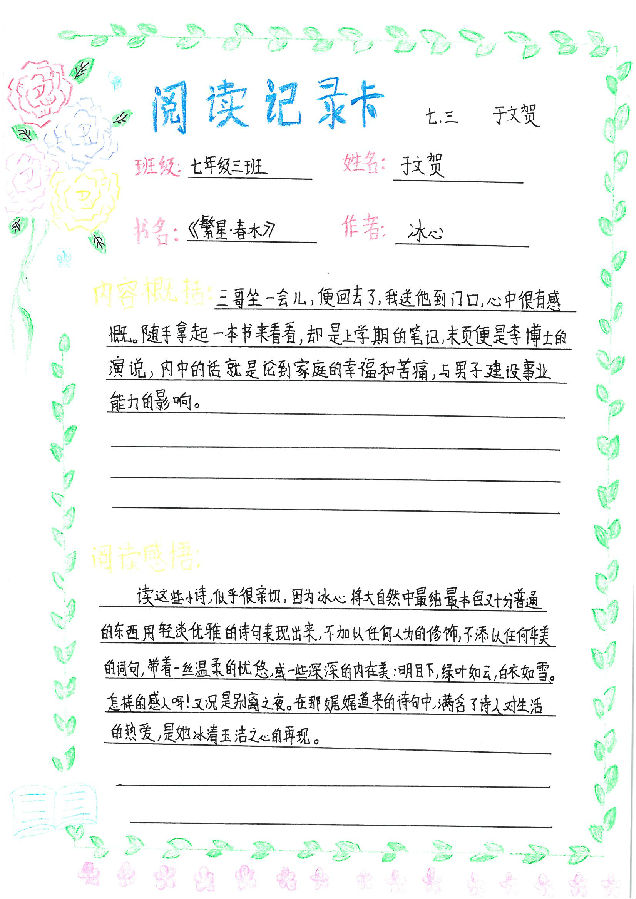 阅读记录卡 七.三 于文贺
班级: 七年级三班 姓名: 于文贺
书名: 《繁星·春水》 作者: 冰心
内容概括: 三哥坐一会儿,便回去了,我送他到门口,心中很有感
慨。随手拿起一本书来看看,却是上学期的笔记,末页便是李博士的
演说,内中的话就是论到家庭的幸福和苦痛,与男子建设事业
能力的影响。
阅读感悟:
读这些小诗,似乎很亲切,因为冰心将大自然中最纯最本色又十分普通
的东西用轻淡优雅的诗句表现出来,不加以任何人为的修饰,不添以任何华美
的词句,带着一丝温柔的忧悠,或一些深深的内在美:明月下,绿叶如云,白衣如雪。
怎样的感人呀!又况是别离之夜。在那娓娓道来的诗句中,满含了诗人对生活
的热爱,是她冰清玉洁之心的再现。